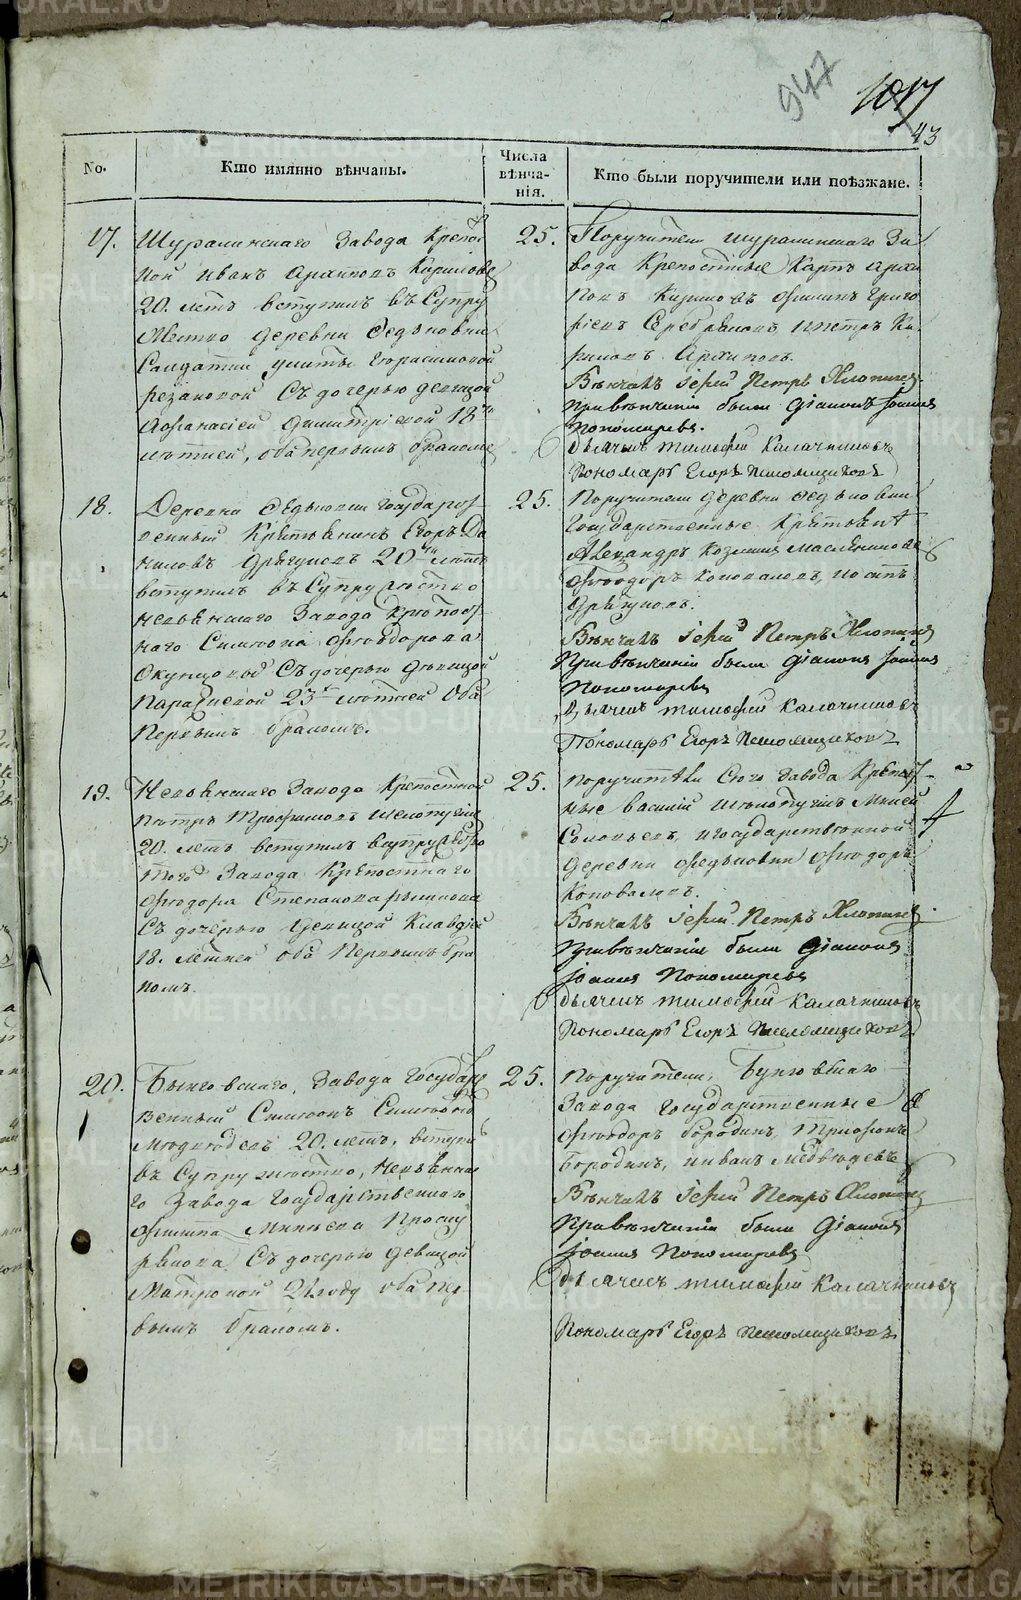 947
1017
43
No.
Кто имянно вѣнчаны.
Числа вѣнча-нія.
Кто были поручители или поѣзжане.
17.
Шуралинскаго Завода Крепос
ной Иванъ Архиповъ Кориловъ
20. летъ вступилъ въ Супру
жество деревни Федьковки
Салдатки Улиты Герасимовой
резановой Съ дочерью девицой
Афанасіей Димитріевой 18ти
летней, оба первымъ бракомъ
25.
Поручители шуралинскаго За
вода Крепостные Карпъ Архи
повъ Филипъ Григо
рьевъ Серебряковъ и петръ Ки
риловъ Архиповъ.
Вѣнчалъ іерей Петръ Хлопинъ
При вѣнчаніи были Діаконъ Іоаннъ
Пономаревъ.
дьячекъ тимофей Калачниковъ
Пономарь Егоръ
18.
Деревни Федьковки Государст
венный Крестьянинъ Егоръ Да
ниловъ 20ти летъ
вступилъ въ Супружество
невьянскаго Завода Крепост
наго Симеона Феодорова
Съ дочерью девицой
Параскевой 23х летней Оба
Первымъ бракомъ.
25.
Поручители деревни Федьковки
Государственные Крестьяне
Александръ Козминъ Масленниковъ
Феодоръ Коноваловъ, иосипъ
Вѣнчалъ іерей Петръ Хлопинъ
При вѣнчаніи были Діаконъ Іоаннъ
Пономаревъ
Дьячекъ тимофей Калачниковъ
Пономарь Егоръ
19.
Невьянскаго Завода Крепостной
Петръ Трофимовъ
20. летъ вступилъ въ супружество
того Завода Крепостнаго
Феодора Степанова
Съ дочерью Девицой Клавдіей
18. летней оба Первымъ бра
комъ.
25.
Поручители Сего Завода Крепост-
ные василій Минѣй
Соловьевъ, и государственной
деревни Федьковки Феодоръ
Коноваловъ.
Вѣнчалъ іерей Петръ Хлопинъ
При вѣнчаніи были Діаконъ
Іоаннъ Пономаревъ
дьячекъ тимофей Калачниковъ
Пономарь Егоръ
20.
Быньговскаго Завода Государс
венный Симеонъ
20. летъ, вступи
въ Супружество, Невьянска
го Завода Государственнаго
Филипа
Съ дочерью девицой
Матроной 21 году оба пер
вымъ бракомъ.
25.
Поручители, Быньговскаго
Завода Государственные
Феодоръ бородинъ, Трифонъ
бородинъ, и иванъ Медвѣдевъ
Вѣнчалъ іерей Петръ Хлопинъ
При вѣнчаніи были Діаконъ
Іоаннъ Пономаревъ
дьячекъ тимофей Калачниковъ
Пономарь Егоръ
METRIKI.GASO-URAL.RU